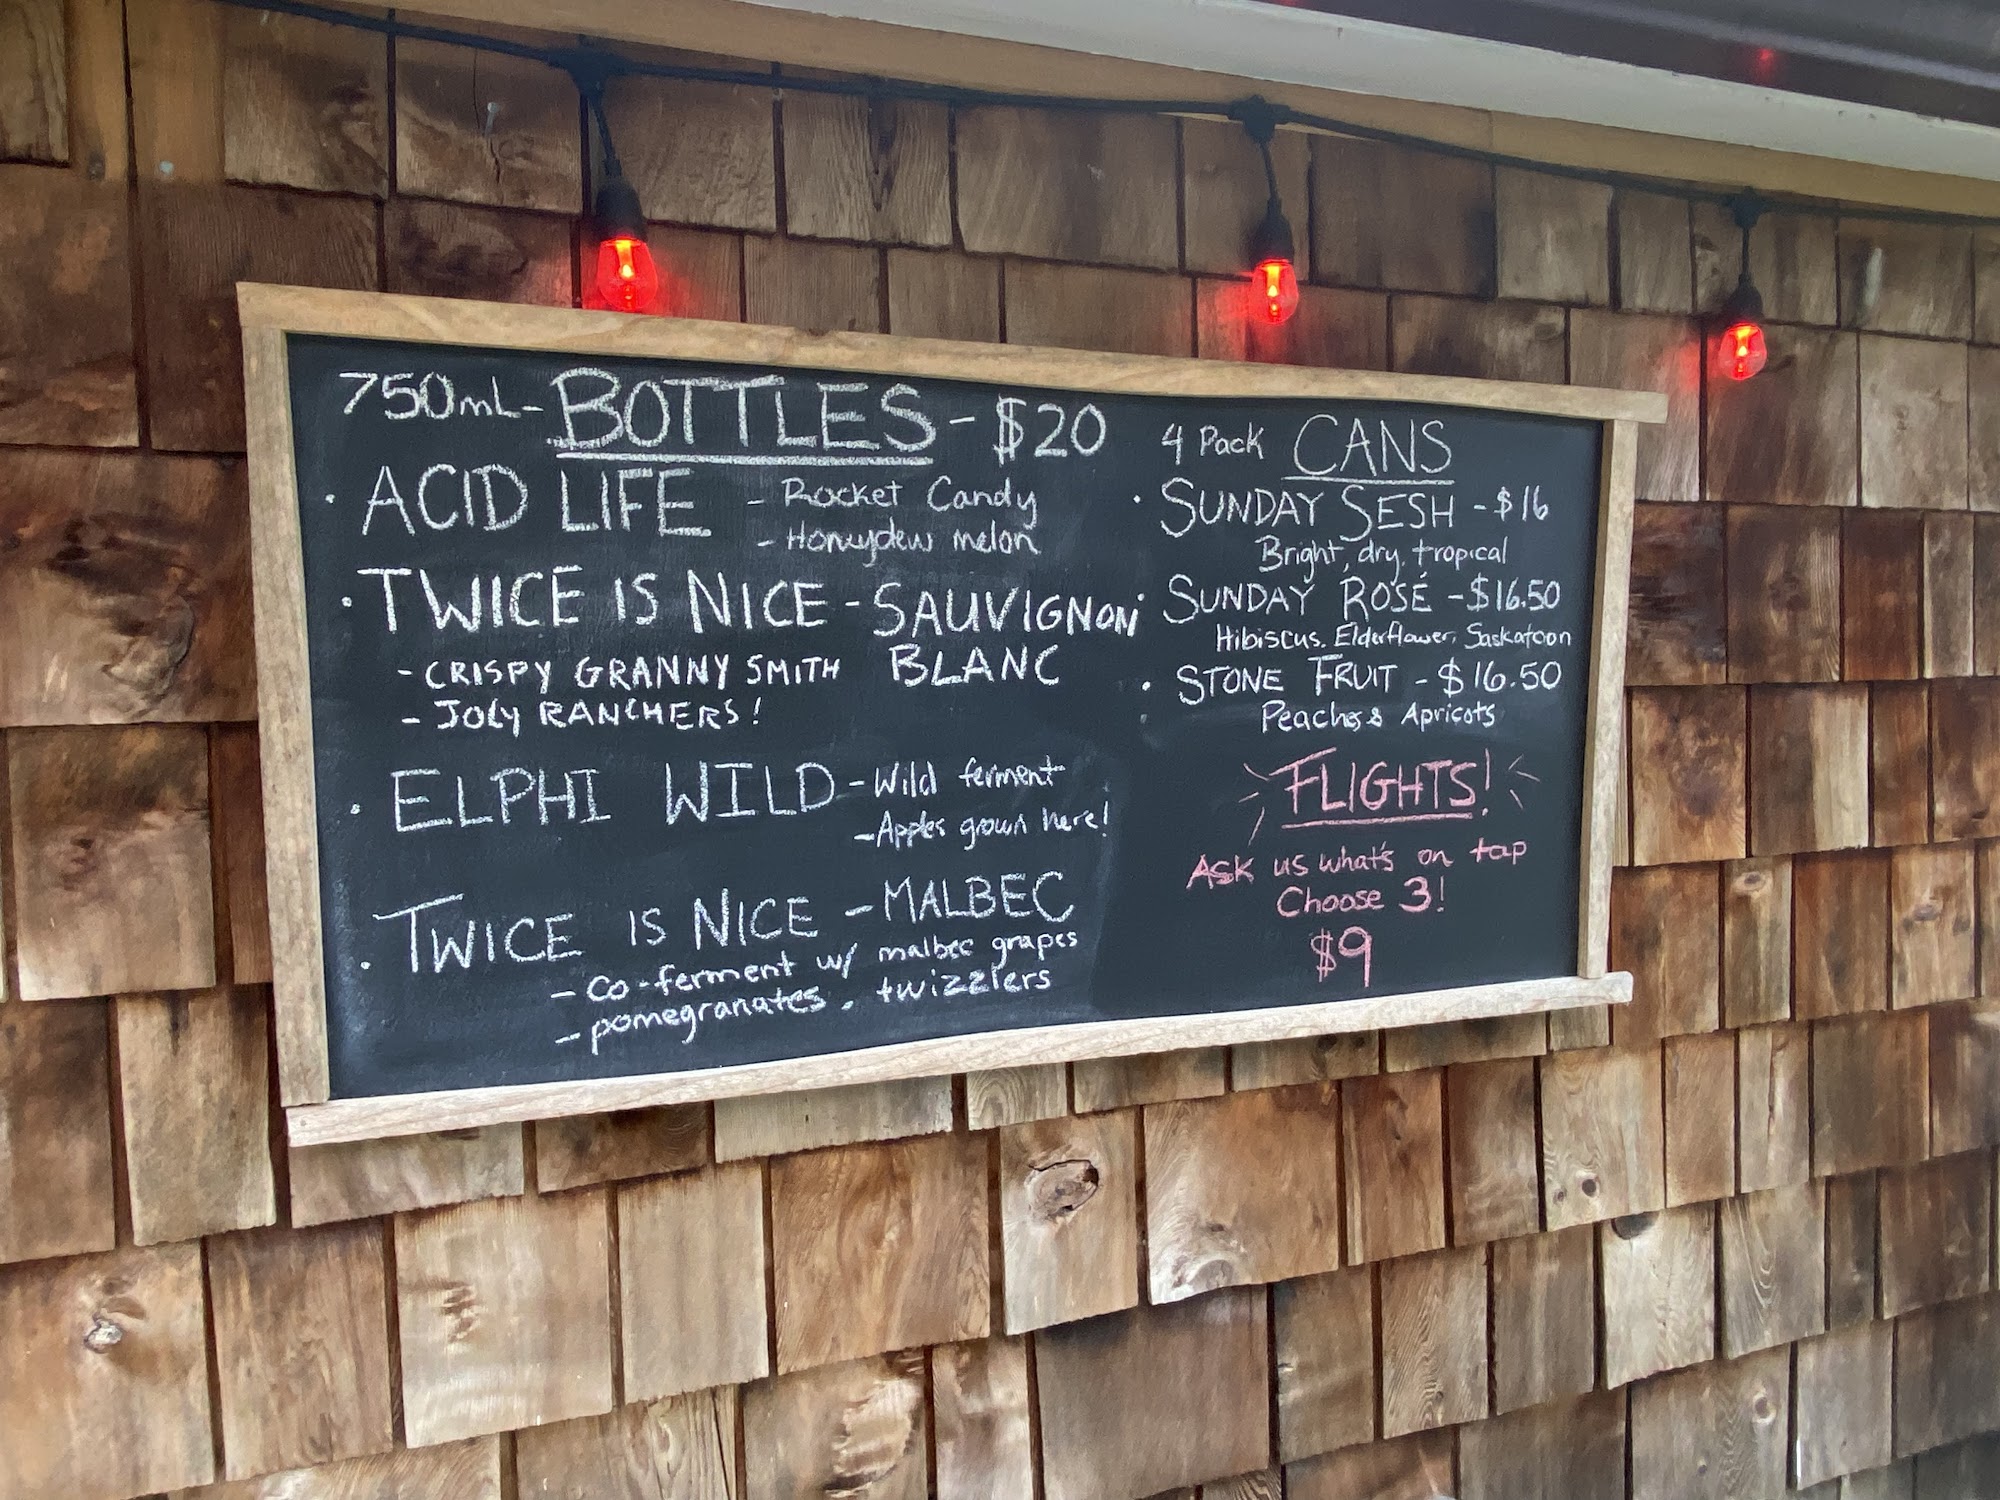 750mL - BOTTLES - $20
· ACID LIFE - Rocket Candy
- Honeydew melon
· TWICE IS NICE - SAUVIGNON
BLANC
- CRISPY GRANNY SMITH
- JOLY RANCHERS!
· ELPHI WILD - Wild ferment
- Apples grown here!
· TWICE IS NICE - MALBEC
- Co-ferment w/ malbec grapes
- pomegranates, twizzlers
4 Pack CANS
· SUNDAY SESH - $16
Bright, dry, tropical
· SUNDAY ROSÉ - $16.50
Hibiscus, Elderflower, Saskatoon
· STONE FRUIT - $16.50
Peaches & Apricots
FLIGHTS!
Ask us what's on tap
Choose 3!
$9